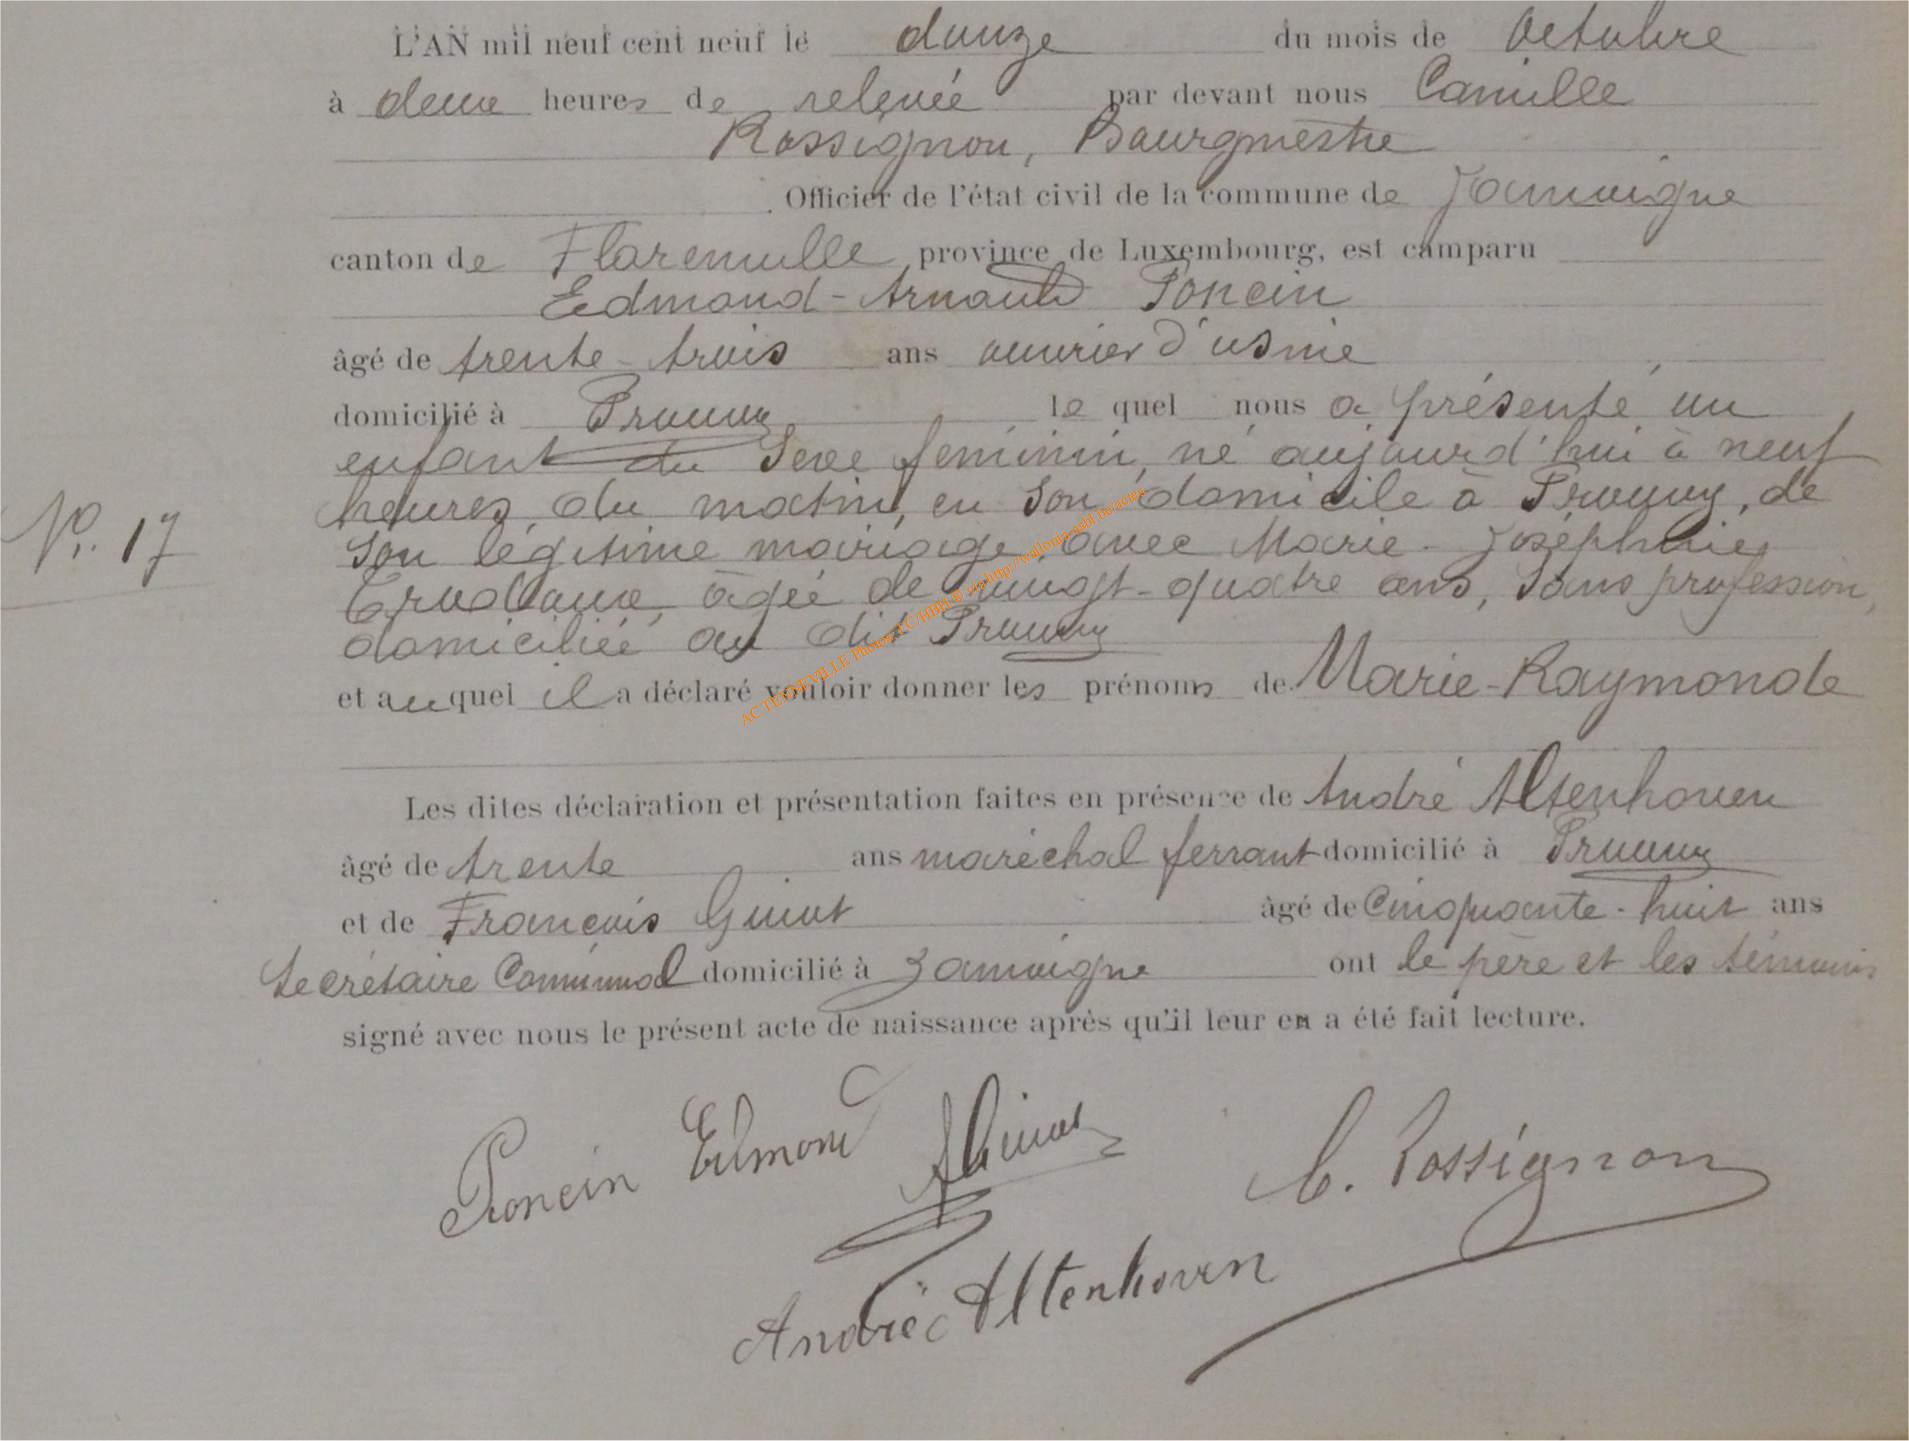 L'AN mil neuf cent neuf le douze du mois de Octobre
à deux heures de relevée par devant nous Camille
Rossignon, Bourgmestre
Officier de l'état civil de la commune de Jamoigne
canton de Florenville province de Luxembourg, est comparu
Edmond-Arnauld Poncin
âgé de trente-trois ans ouvrier d'usine
domicilié à Prouvy lequel nous a présenté un
enfant du sexe feminin, né aujourd'hui à neuf
heures, du matin, en son domicile à Prouvy, de
N°. 17
son légitime mariage avec Marie-Joséphine
âgée de vingt-quatre ans, sans profession,
domiciliée au dit Prouvy
et auquel il a déclaré vouloir donner les prénoms de Marie-Raymonde
Les dites déclaration et présentation faites en présence de André Altenhoven
âgé de trente ans maréchal ferrant domicilié à Prouvy
et de François Guiot âgé de Cinquante-huit ans
Secrétaire Communal domicilié à Jamoigne ont le père et les témoins
signé avec nous le présent acte de naissance après qu'il leur en a été fait lecture.
Poncin Edmond
Guiot
C. Rossignon
André Altenhoven
ACTEDEVILLE
http://wallonia-asbl